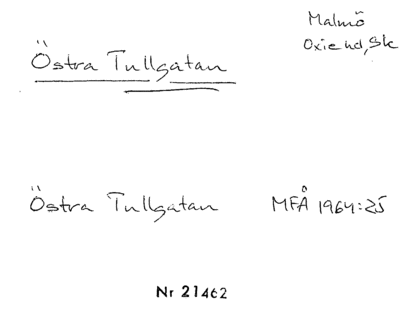 Malmö
Oxie hd, Sk
Östra Tullgatan
Östra Tullgatan MFÅ 1964:25
Nr 21462